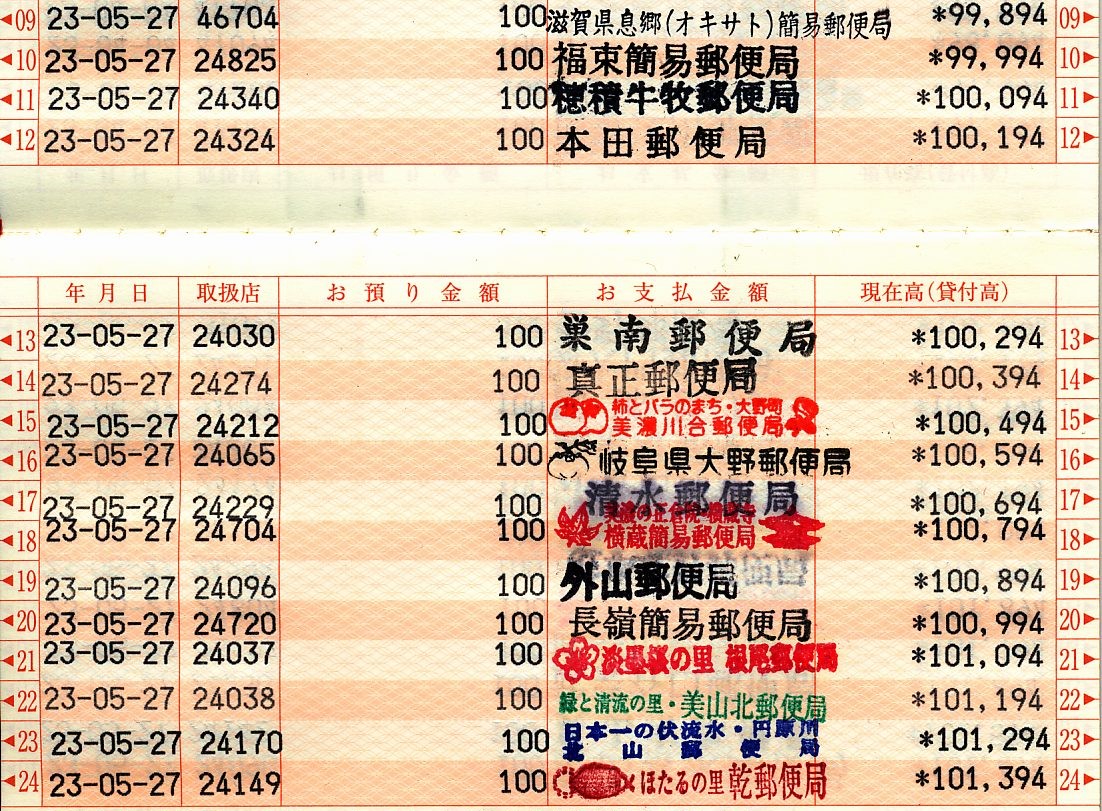 ◀09 23-05-27 46704 100 滋賀県息郷(オキサト)簡易郵便局 *99,894 09▶
◀10 23-05-27 24825 100 福束簡易郵便局 *99,994 10▶
◀11 23-05-27 24340 100 穂積牛牧郵便局 *100,094 11▶
◀12 23-05-27 24324 100 本田郵便局 *100,194 12▶
年月日 取扱店 お預り金額 お支払金額 現在高(貸付高)
◀13 23-05-27 24030 100 巣南郵便局 *100,294 13▶
◀14 23-05-27 24274 100 真正郵便局 *100,394 14▶
柿とバラのまち・大野町
◀15 23-05-27 24212 100 美濃川合郵便局 *100,494 15▶
◀16 23-05-27 24065 100 岐阜県大野郵便局 *100,594 16▶
◀17 23-05-27 24229 100 清水郵便局 *100,694 17▶
美濃の正倉院 横蔵寺
◀18 23-05-27 24704 100 横蔵簡易郵便局 *100,794 18▶
◀19 23-05-27 24096 100 外山郵便局 *100,894 19▶
◀20 23-05-27 24720 100 長嶺簡易郵便局 *100,994 20▶
◀21 23-05-27 24037 100 淡墨桜の里 根尾郵便局 *101,094 21▶
◀22 23-05-27 24038 100 緑と清流の里・美山北郵便局 *101,194 22▶
日本一の伏流水・円原川
◀23 23-05-27 24170 100 北山郵便局 *101,294 23▶
◀24 23-05-27 24149 100 ほたるの里 乾郵便局 *101,394 24▶